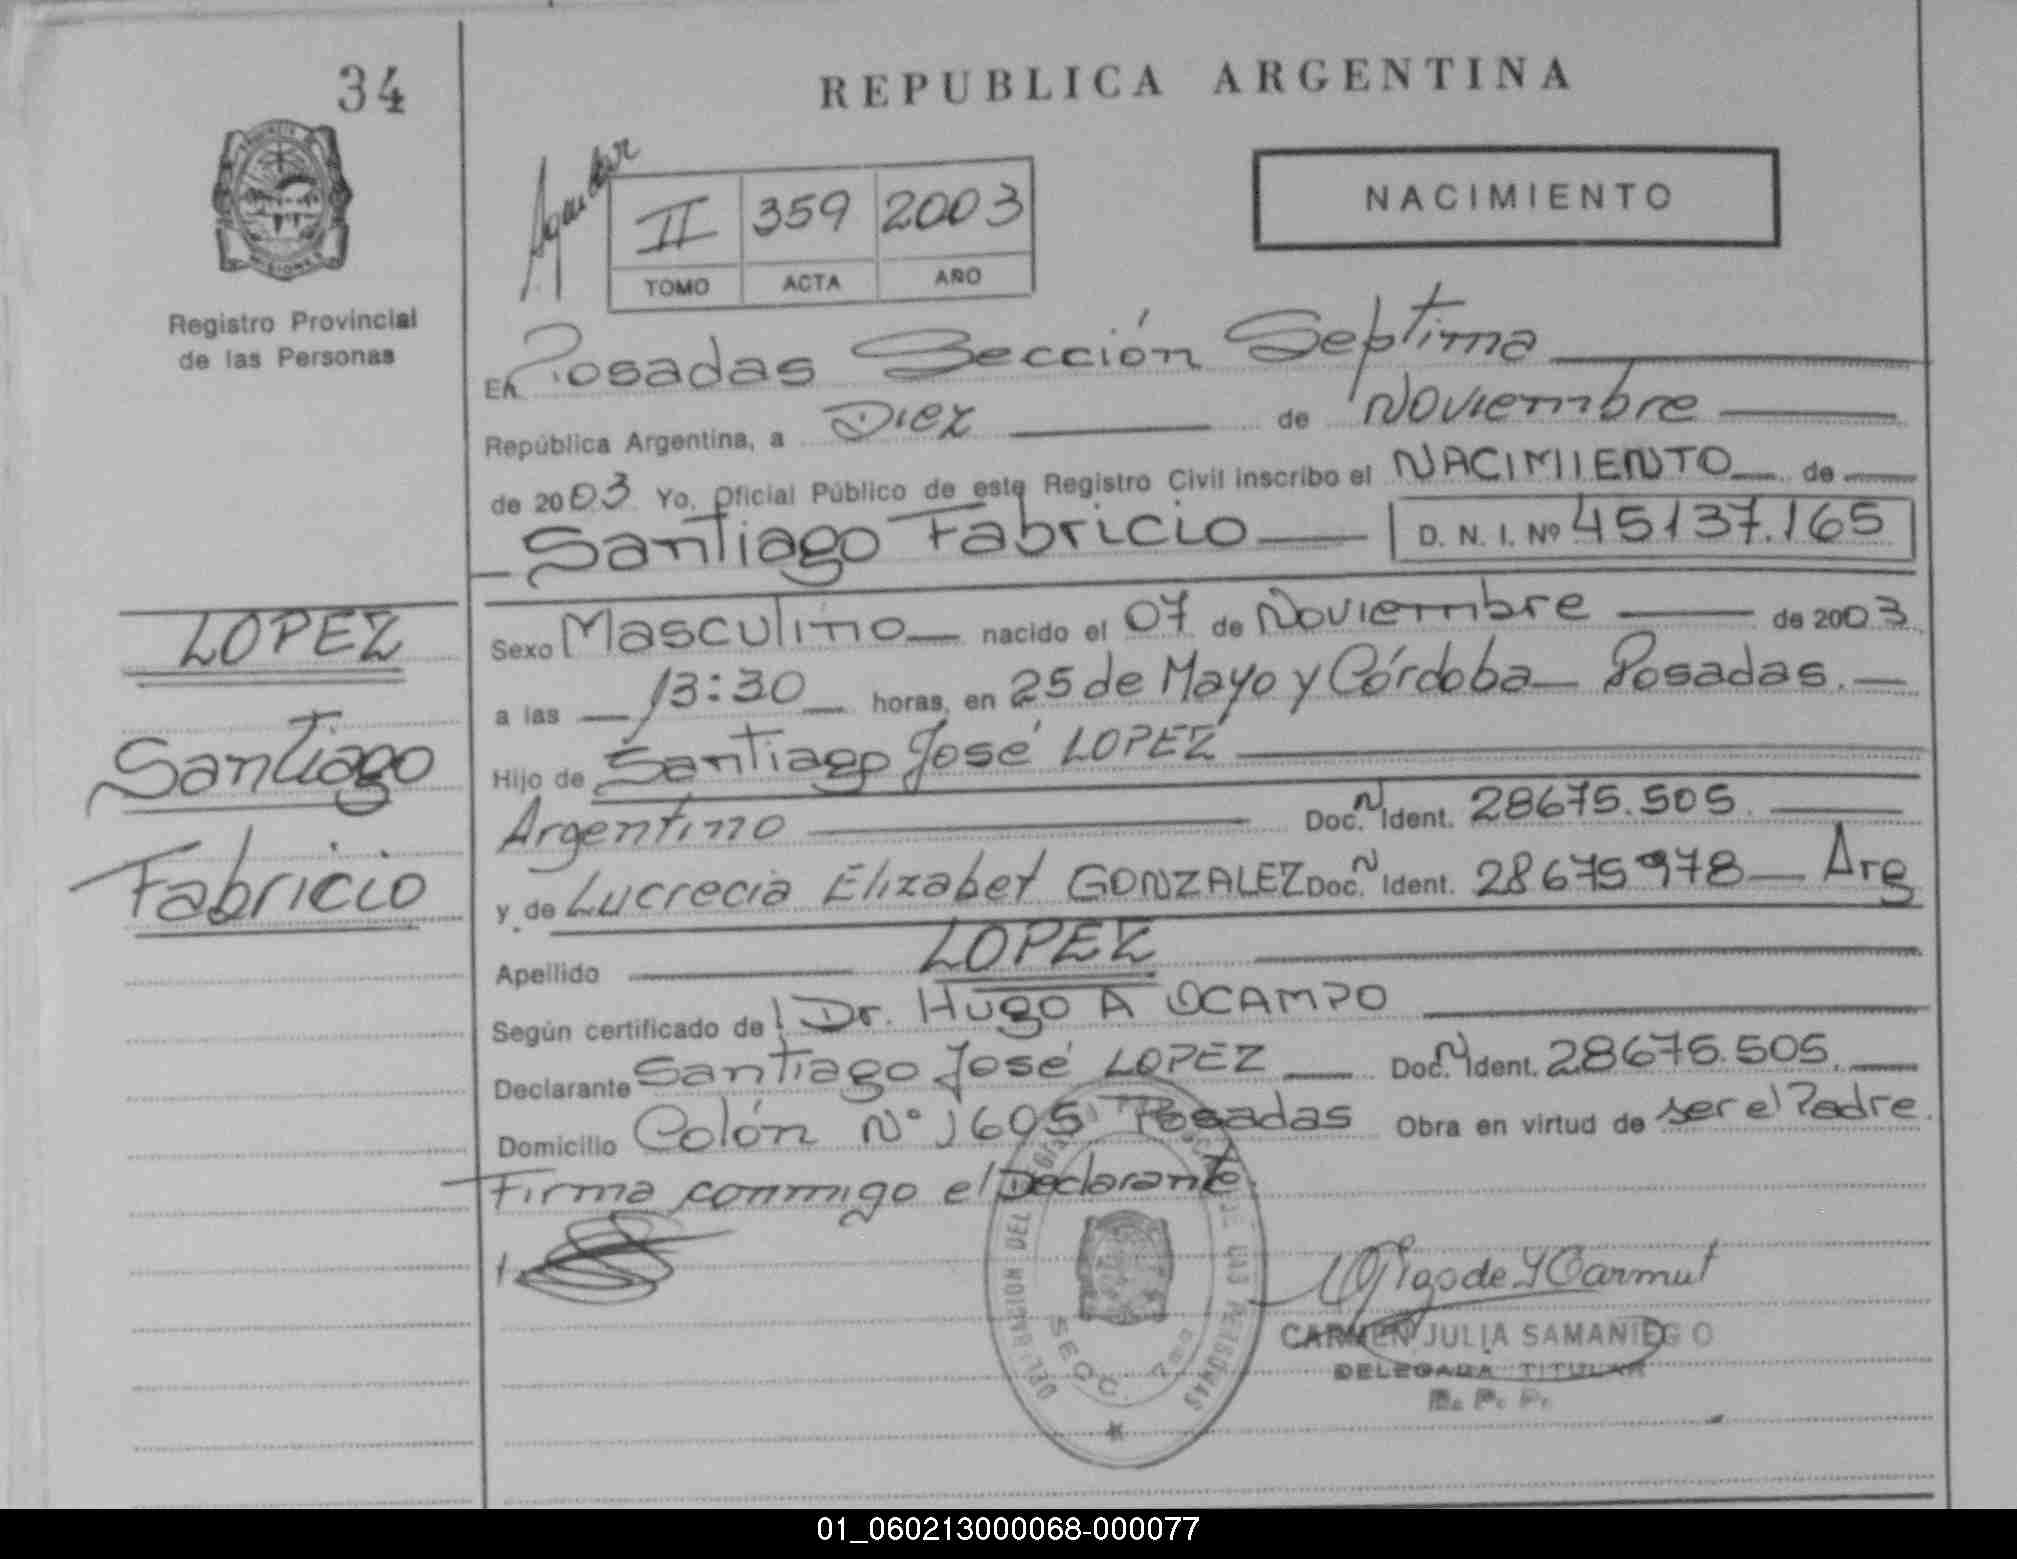 34
REPUBLICA ARGENTINA
NACIMIENTO
II 359 2003
TOMO ACTA AÑO
Registro Provincial
de las Personas
En Posadas Sección Septima
República Argentina, a Diez de Noviembre
de 2003 Yo, Oficial Público de este Registro Civil inscribo el NACIMIENTO de
Santiago Fabricio D. N. I. Nº 45137.165
LOPEZ
Santiago
Fabricio
Sexo Masculino nacido el 07 de Noviembre de 2003
a las 13:30 horas, en 25 de Mayo y Córdoba Posadas.
Hijo de Santiago José LOPEZ
Argentino Doc. N Ident. 28675.505.
y de Lucrecia Elizabet GONZALEZ Doc. N Ident. 28675978 Arg
Apellido LOPEZ
Según certificado de Dr. Hugo A OCAMPO
Declarante Santiago José LOPEZ Doc. N Ident. 28675.505.
Domicilio Colón N° 1605 Posadas Obra en virtud de ser el Padre.
Firma conmigo el Declarante.
SECC. 7ma
CARMEN JULIA SAMANIEGO
DELEGADA TITULAR
R. P. P.
01_060213000068-000077